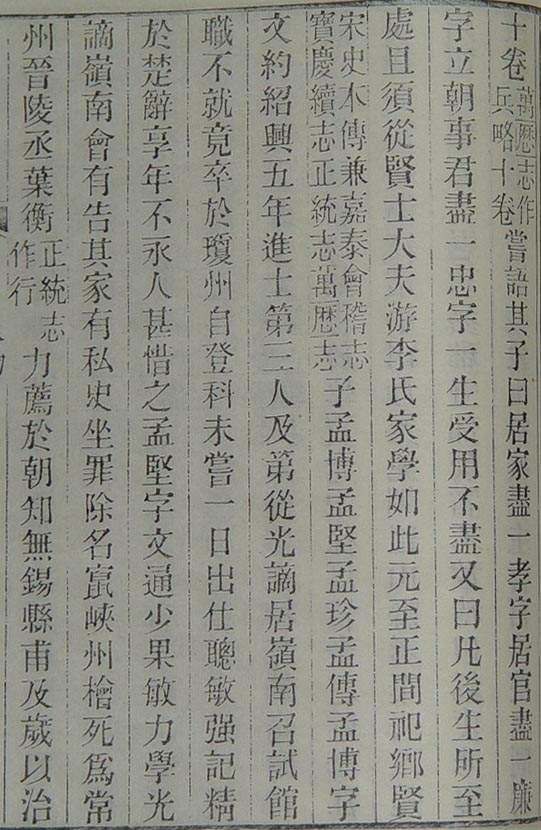 十卷萬歷志作兵略十卷嘗語其子曰居家盡一孝字居官盡一廉
字立朝事君盡一忠字一生受用不盡又曰凡後生所至
處且須從賢士大夫游李氏家學如此元至正間祀鄉賢
宋史本傳兼嘉泰會稽志寶慶續志正統志萬歷志子孟博孟堅孟珍孟傳孟博字
文約紹興五年進士第三人及第從光謫居嶺南召試館
職不就竟卒於瓊州自登科未嘗一日出仕聰敏强記精
於楚辭享年不永人甚惜之孟堅字文通少果敏力學光
謫嶺南會有告其家有私史坐罪除名竄峽州檜死爲常
州晉陵丞葉衡正統志作行力薦於朝知無錫縣甫及歲以治